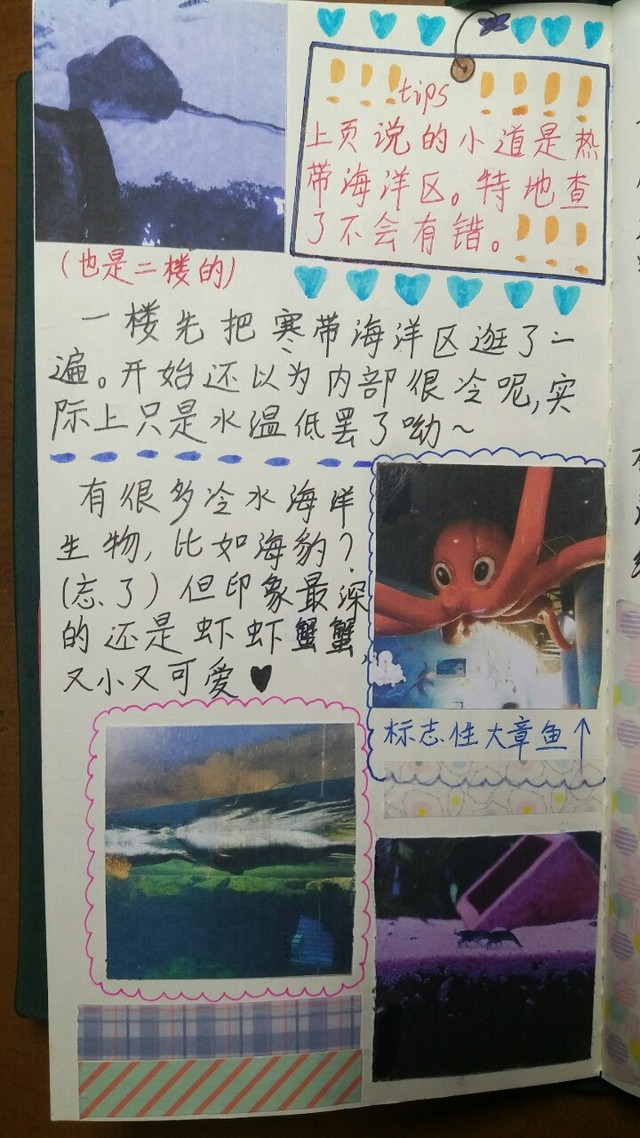 !!! tips !!!!
上页说的小道是热
带海洋区。特地查
了不会有错。!!!
(也是二楼的)
一楼先把寒带海洋区逛了一
遍。开始还以为内部很冷呢,实
际上只是水温低罢了呦~
有很多冷水海洋
生物,比如海豹?
(忘了)但印象最深
的还是虾虾蟹蟹,
又小又可爱♥
标志性大章鱼↑